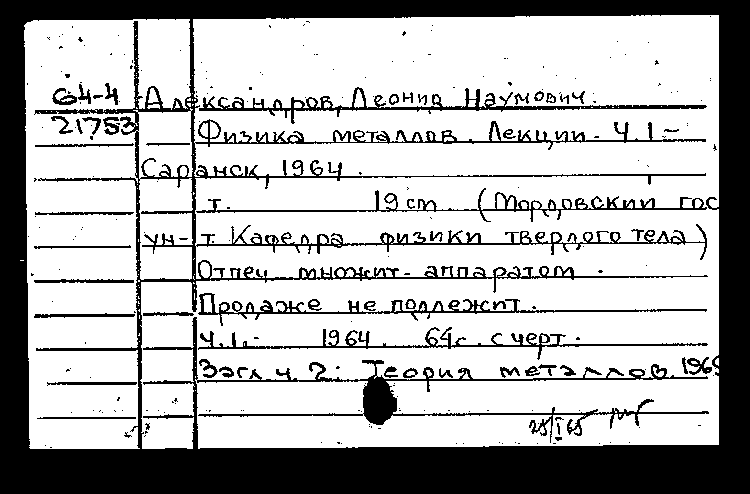 64-4 Александров, Леонид Наумович.
21753 Физика металлов. Лекции. Ч. 1-
Саранск, 1964.
т. 19 cm. (Мордовский гос
ун-т. Кафедра физики твердого тела)
Отпеч. множит. аппаратом.
Продаже не подлежит.
Ч. 1.- 1964. 64 с. с черт.
Загл. ч. 2: Теория металлов. 196
25/I 65